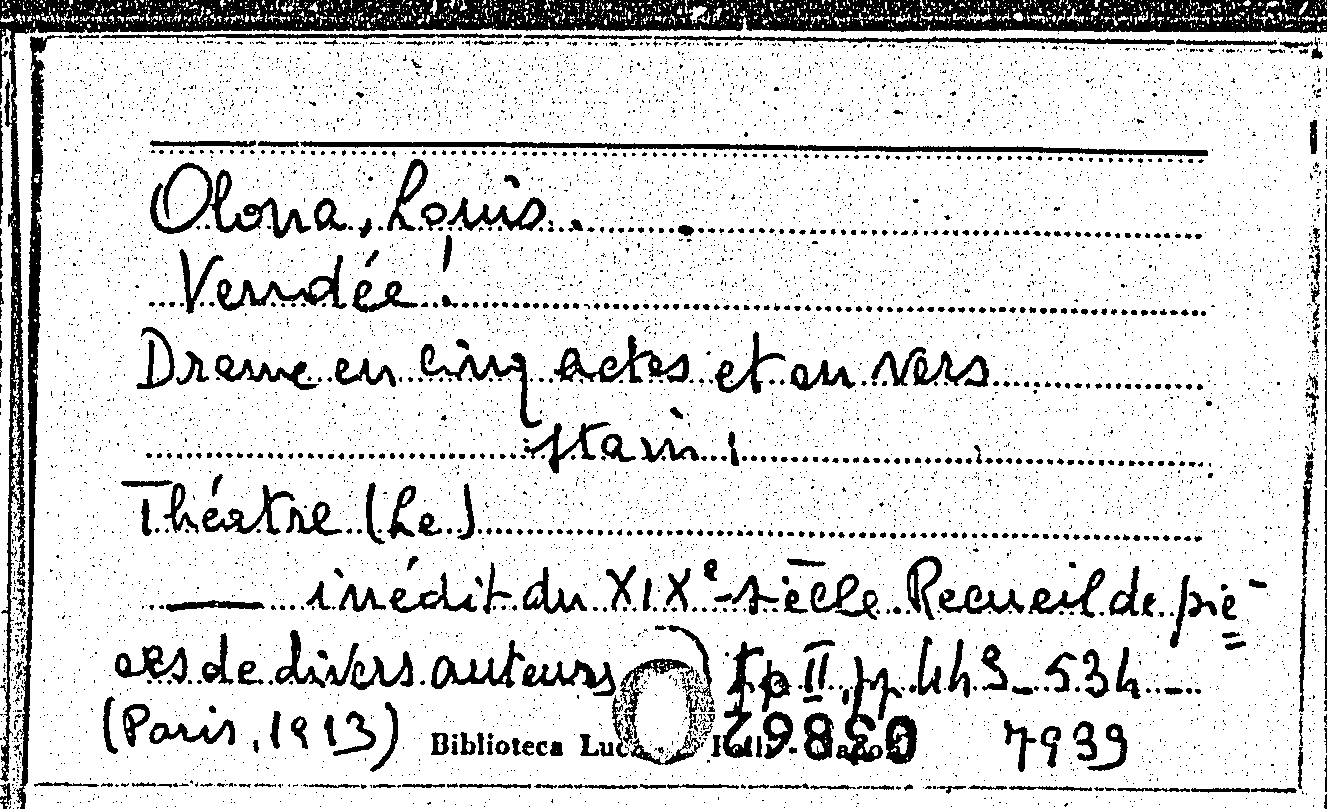 Olona, Louis.
Vendée!
Drame en cinq actes et en vers
Théatre (Le)
— inédit du XIXe siècle. Recueil de piè-
ces de divers auteurs II, pp. 443-534
(Paris, 1913) Biblioteca 03862 7939